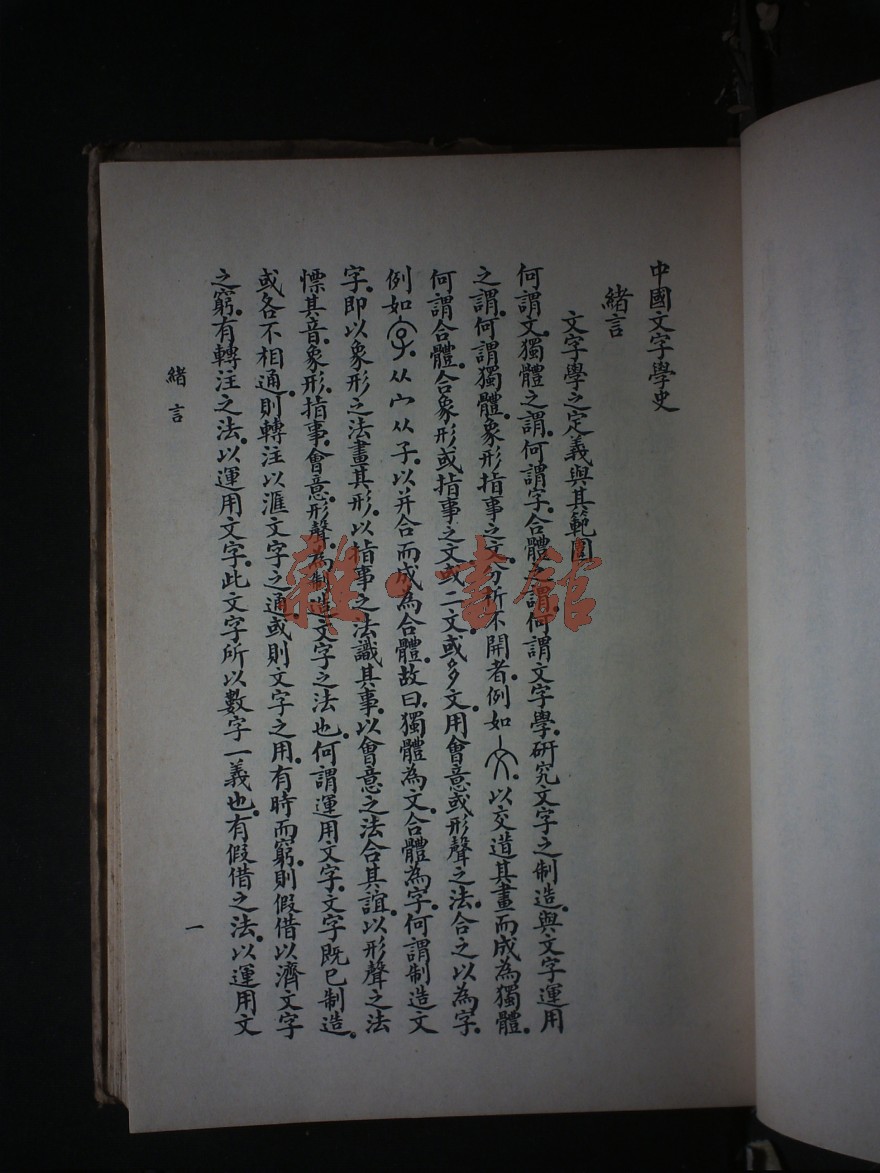 中國文字學史
緒言
文字學之定義與其範圍
何謂文。獨體之謂。何謂字。合體之謂。何謂文字學。研究文字之制造。與文字運用
之謂。何謂獨體。象形指事之文。分析不開者。例如。以交道其畫而成為獨體。
何謂合體。合象形或指事之文。或二文。或多文。用會意或形聲之法。合之以為字。
例如。从宀从子。以并合而成為合體。故曰。獨體為文。合體為字。何謂制造文
字。即以象形之法畫其形。以指事之法識其事。以會意之法合其誼。以形聲之法
慓其音。象形。指事。會意。形聲。為制造文字之法也。何謂運用文字。文字既已制造。
或各不相通。則轉注以滙文字之通。或則文字之用。有時而窮。則假借以濟文字
之窮。有轉注之法。以運用文字。此文字所以數字一義也。有假借之法。以運用文
緒言
一
雜·書館